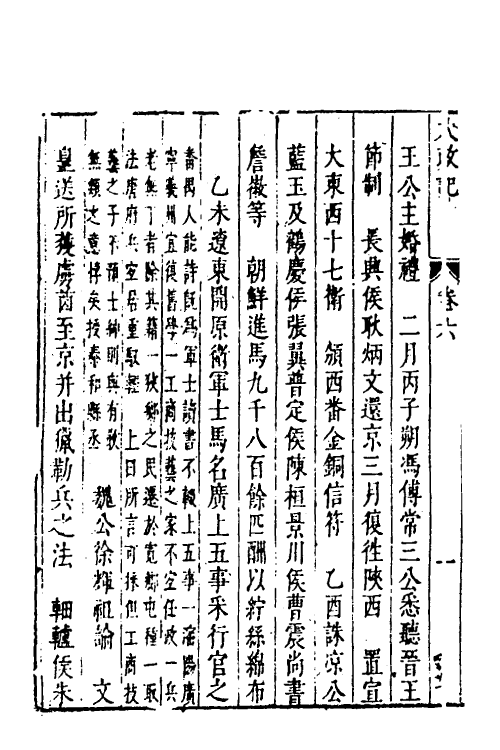 大政記
卷六
一
王公主婚禮　二月丙子朔馮傅常三公悉聽晉王
節制　長興侯耿炳文還京三月復徃陝西　置宣
大東西十七衛　頒西番金銅信符　乙酉誅凉公
藍玉及鶴慶侯張翼普定侯陳桓景川侯曹震尚書
詹徽等　朝鮮進馬九千八百餘匹酬以紵絲綿布
乙未遼東開原衛軍士馬名廣上五事采行官之
番禺人能詩旣爲軍士讀書不輟上五事一瀋陽廣
寧義州宜復舊學一工商技藝之家不宜任政一兵
老無丁者除其籍一狹鄉之民遷於寛鄉屯種一取
法唐府兵宜居重馭輕　上曰所言可採但工商技
藝之子不預士紳則與有教
無類之意悖矣授泰和縣丞
魏公徐輝祖論　文
皇送所獲虜酋至京并出儆勒兵之法　舳艫侯朱